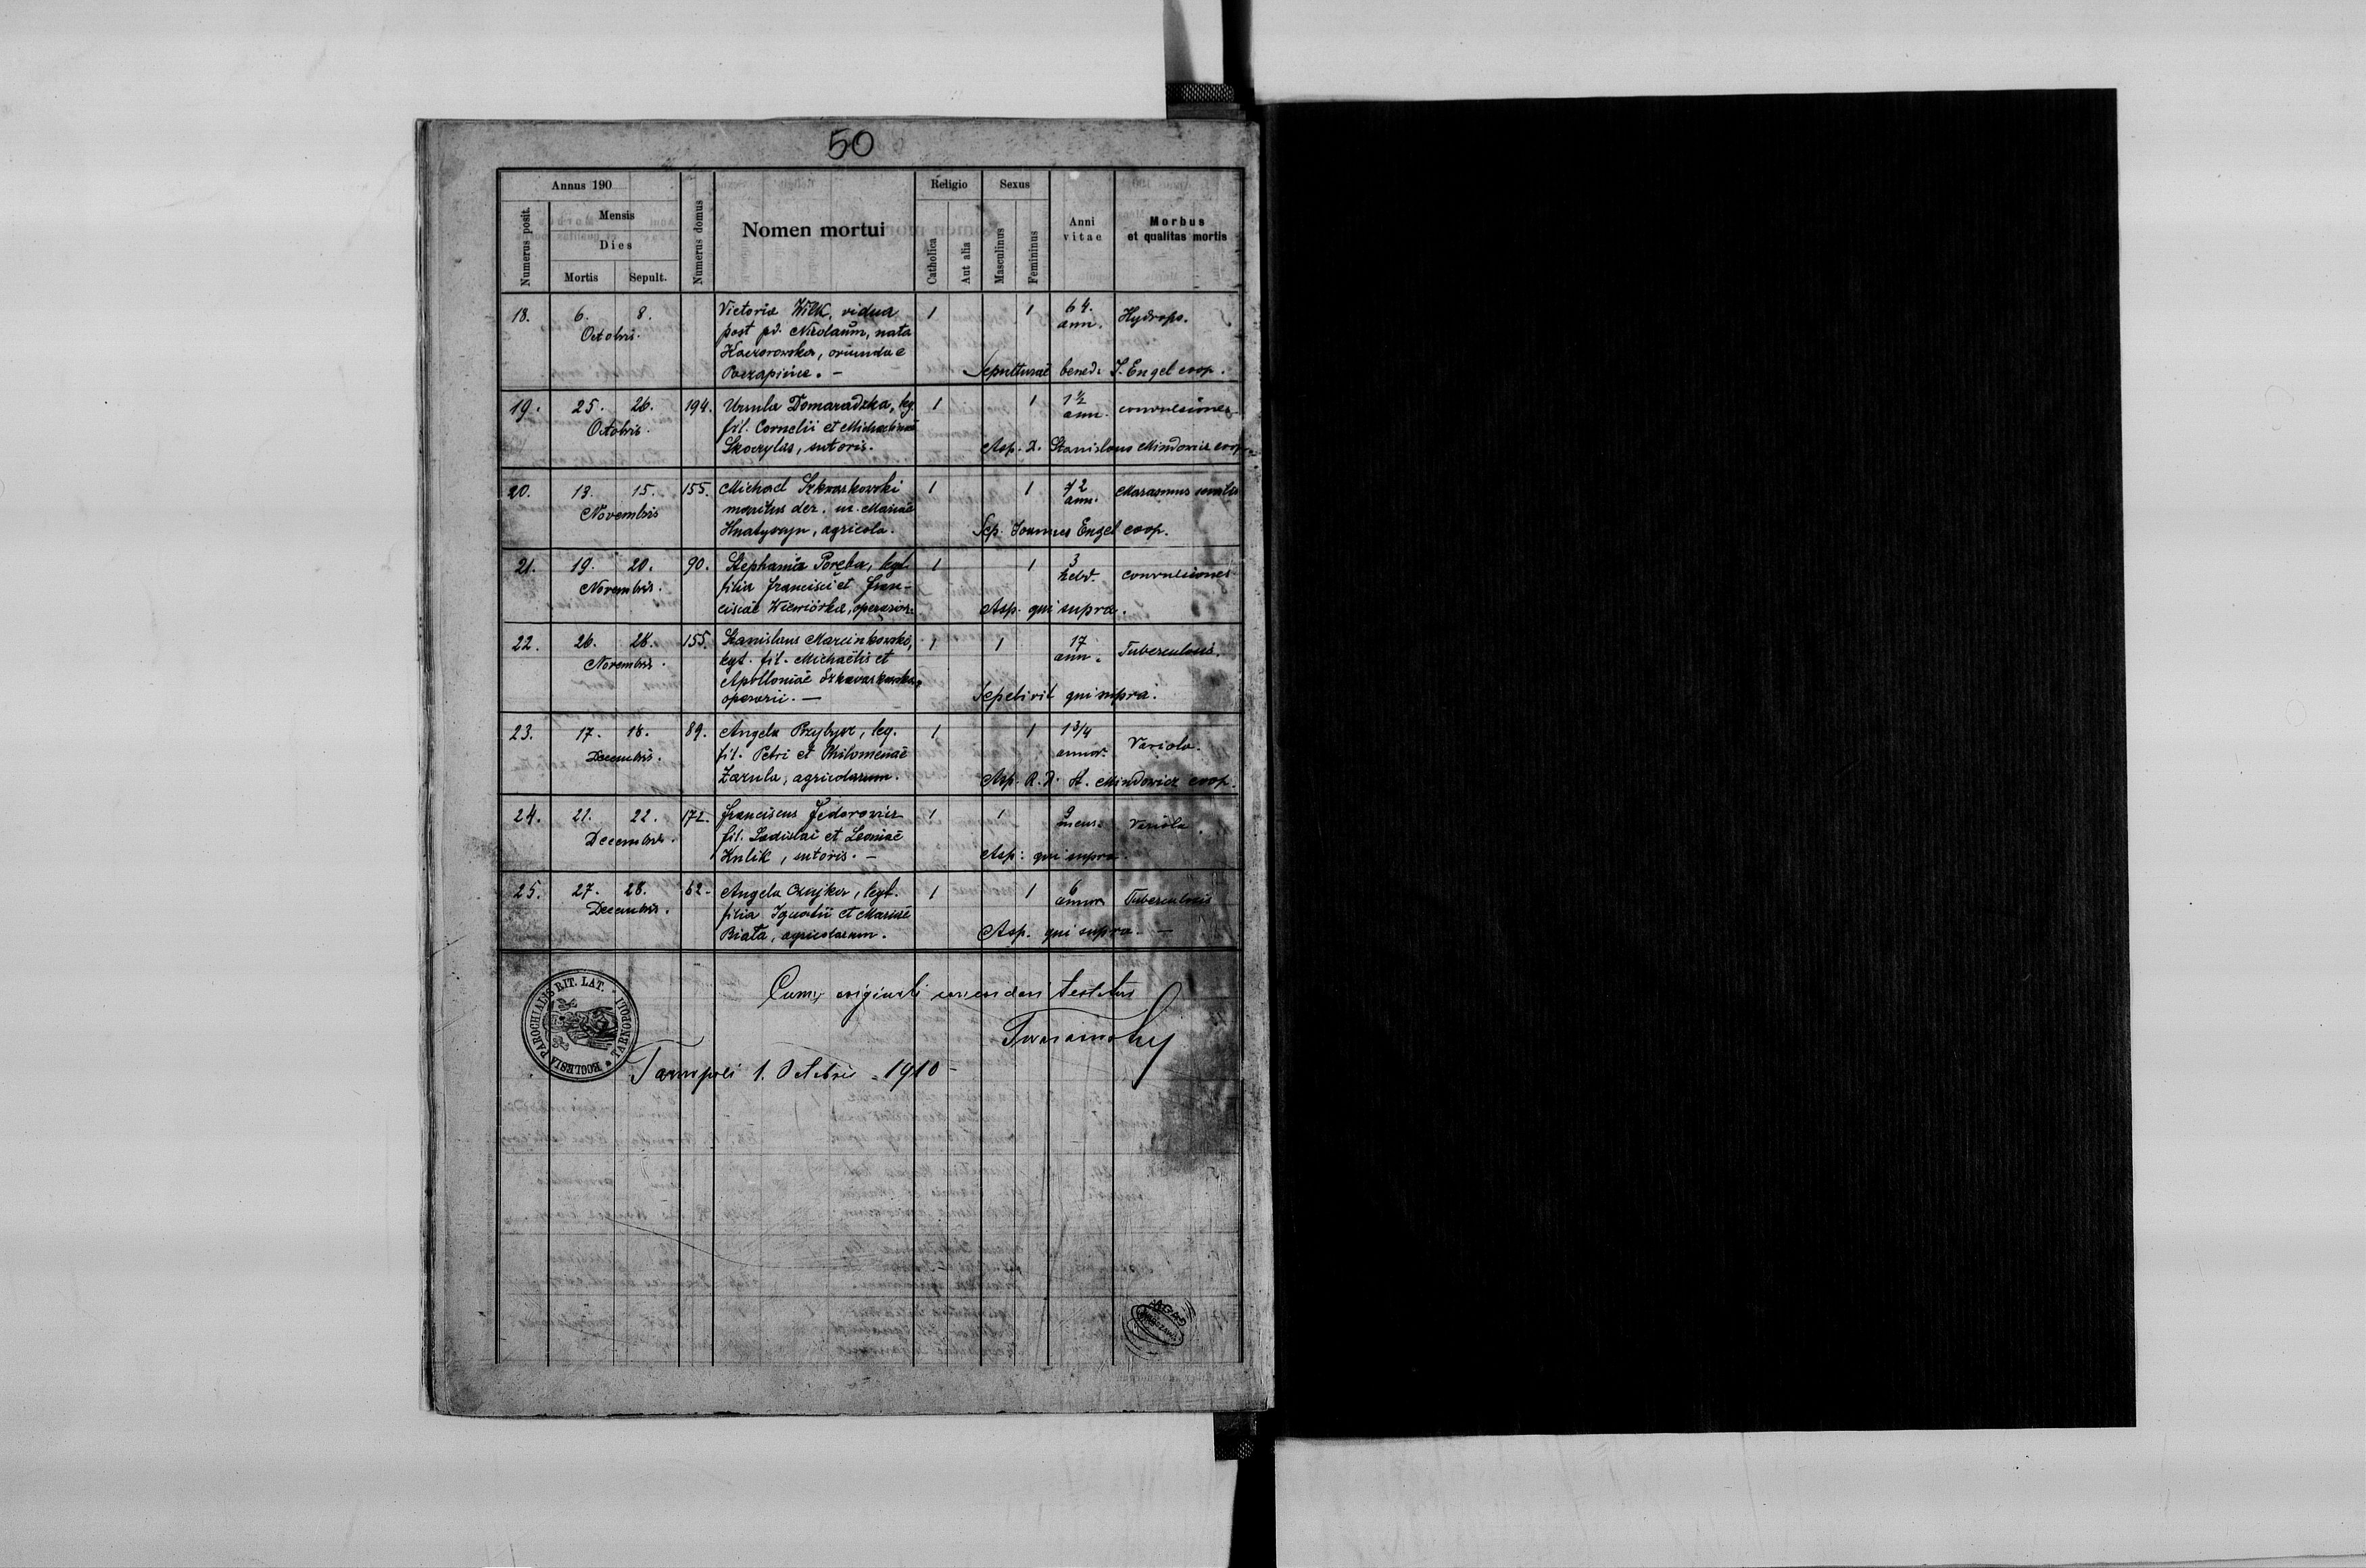 50
Annus 190
Numerus posit.
Mensis
Dies
Mortis Sepult.
Numerus domus
Nomen mortui
Religio
Catholica
Aut alia
Sexus
Masculinus
Femininus
Anni vitae
Morbus et qualitas mortis
18. 6. 8. Victoria Wilk, vidua 1 1 64. Hydrops.
Octobris. post pd. Nicolaum, nata ann.
Kaczorowska, oriunda e
Sepulturae bened. J. Engel coop.
19. 25. 26. 194. Ursula Domaradzka, leg. 1 1 1½ convulsiones
Octobris. fil. Cornelii et Michaelinae ann.
Skoczylas, sutoris. Asp. X. Stanislaus Mindowicz coop.
20. 13. 15. 155. Michael Szkwarkowski 1 1 72 Marasmus senilis
Novembris maritus der. ux. Mariae ann.
agricola. Sep. Joannes Engel coop.
21. 19. 20. 90. Stephania Poręba, legt. 1 1 3 convulsiones
Novembris. filia Francisci et Fran- hebd.
ciscae Wiewiórka, Asp. qui supra.
22. 26. 28. 155. Stanislaus Marcinkowski, 1 1 17 Tuberculosis.
Novembris. legt. fil. Michaëlis et ann.
Apolloniae
operarii. — Sepelivit qui supra.
23. 17. 18. 89. Angela Przybysz, leg. 1 1 1 3/4 Variola.
Decembris. fil. Petri et Philomenae annor.
agricolarum. Asp. R. X. St. Mindowicz coop.
24. 21. 22. 172. Franciscus Fedorowicz 1 1 9 Variola.
Decembris. fil. Ladislai et Leoniae mens.
Kulik, sutoris. — Asp. qui supra.
25. 27. 28. 62. Angela Czajka, legt. 1 1 6 Tuberculosis
Decembris. filia Ignatii et Mariae annor.
Biała, agricolarum. Asp. qui supra. —
Cum originali testatur
ECCLESIA PAROCHIALIS RIT. LAT. TARNOPOLI
Tarnopoli 1. Octobris 1910
AGAD